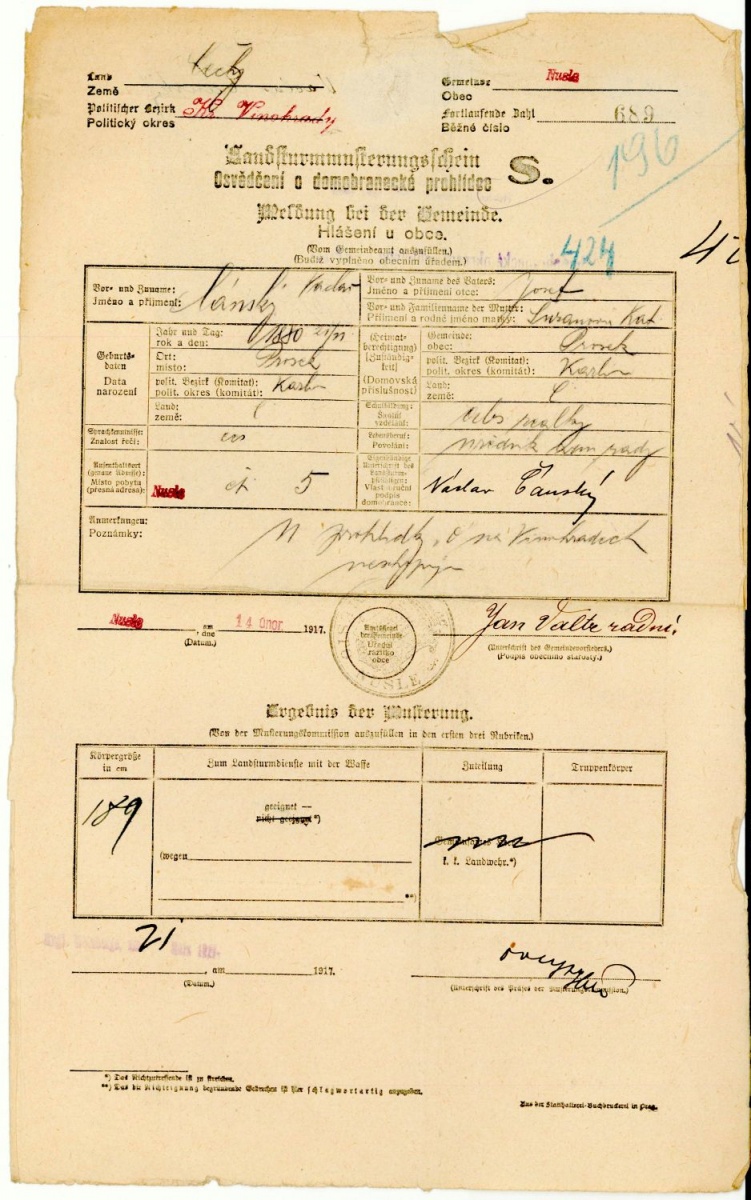 Land
Země
Čechy
Politischer Bezirk
Politický okres
Kr. Vinohrady
Gemeinde
Obec
Nusle
Fortlaufende Zahl
Běžné číslo
689
196
Landsturmmusterungsschein
Osvědčení o domobranecké prohlídce
S.
Meldung bei der Gemeinde.
Hlášení u obce.
(Vom Gemeindeamt auszufüllen.)
(Budiž vyplněno obecním úřadem.)
424
Vor- und Zuname:
Jméno a příjmení:
Čánský Václav
Vor- und Zuname des Vaters:
Jméno a příjmení otce:
Josef
Vor- und Familienname der Mutter:
Příjmení a rodné jméno matky:
Kat.
Geburtsdaten
Data narození
Jahr und Tag:
rok a den:
1880
Ort:
místo:
Prosek
polit. Bezirk (Komitat):
polit. okres (komitát):
Karlín
Land:
země:
Č
(Heimatberechtigung)
[Zuständigkeit]
(Domovská příslušnost)
Gemeinde:
obec:
Prosek
polit. Bezirk (Komitat):
polit. okres (komitát):
Karlín
Land:
země:
Č
Sprachkenntnisse:
Znalost řeči:
Schulbildung:
Školní vzdělání:
Lebensberuf:
Povolání:
Aufenthaltsort
(genaue Adresse):
Místo pobytu
(přesná adresa):
Nusle čp. 5
Eigenhändige Unterschrift des Landsturmpflichtigen:
Vlastnoruční podpis domobrance:
Václav Čánský
Anmerkungen:
Poznámky:
prohlídky, na Vinohradech
Nusle
am
dne
(Datum.)
14 Únor
1917.
Amtssiegel der Gemeinde
Úřední razítko obce
NUSLE
Jan radní.
(Unterschrift des Gemeindevorstehers.)
(Podpis obecního starosty.)
Ergebnis der Musterung.
(Von der Musterungskommission auszufüllen in den ersten drei Rubriken.)
Körpergröße
in cm
Zum Landsturmdienste mit der Waffe
Zuteilung
Truppenkörper
189
geeignet —
nicht geeignet*)
(wegen
**)
k. k. Landwehr.*)
21
, am
1917.
(Datum.)
(Unterschrift des Präses der Musterungskommission.)
*) Das Nichtzutreffende ist zu streichen.
**) Das die Nichteignung begründende Gebrechen ist hier schlagwortartig anzugeben.
Aus der Statthalterei-Buchdruckerei in Prag.